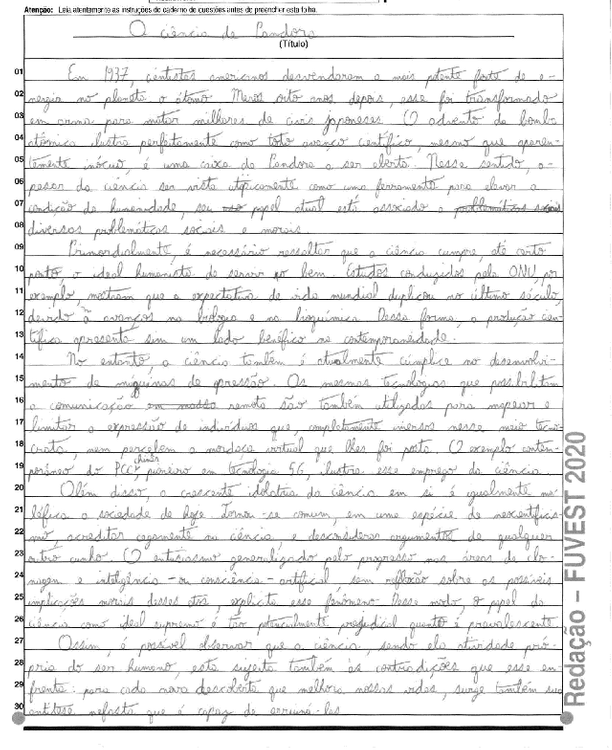 Atenção: Leia atentamente as instruções do caderno de questões antes de preencher esta folha.
A ciência de Pandora
(Título)
01 Em 1937, cientistas americanos desvendaram a mais potente fonte de e-
02 nergia no planeta: o átomo. Meros oito anos depois, esse foi transformado
03 em arma para matar milhares de civis japoneses. O advento da bomba
04 atômica ilustra perfeitamente como todo avanço científico, mesmo que aparen-
05 temente inócuo, é uma caixa de Pandora a ser aberta. Nesse sentido, a-
06 pesar da ciência ser vista utopicamente como uma ferramenta para elevar a
07 condição da humanidade, seu papel atual está associado a problemáticas sociais
08 diversas problemáticas sociais e morais.
09 Primordialmente, é necessário ressaltar que a ciência cumpre, até certo
10 ponto, o ideal humanista de servir ao bem. Estudos conduzidos pela ONU, por
11 exemplo, mostram que a expectativa de vida mundial duplicou no último século,
12 devido a avanços na biologia e na bioquímica. Dessa forma, a produção cien-
13 tífica apresenta sim um lado benéfico na contemporaneidade.
14 No entanto, a ciência também é atualmente cúmplice no desenvolvi-
15 mento de máquinas de opressão. As mesmas tecnologias que possibilitam
16 a comunicação em massa remota são também utilizadas para mapear e
17 limitar a expressão de indivíduos que, completamente imersos nesse meio tecno-
18 crata, nem percebem a mordaça virtual que lhes foi posta. O exemplo contem-
19 porâneo do PCC chinês, pioneiro em tecnologia 5G, ilustra esse emprego da ciência.
20 Além disso, a crescente idolatria da ciência em si é igualmente ma-
21 léfica à sociedade de hoje. Torna-se comum, em uma espécie de neocientificis-
22 mo, acreditar cegamente na ciência e desconsiderar argumentos de qualquer
23 outro cunho. O entusiasmo generalizado pelo progresso nas áreas de clo-
24 nagem e inteligência - ou consciência - artificial, sem reflexão sobre as possíveis
25 implicações morais desses atos, explicita esse fenômeno. Desse modo, o papel da
26 ciência como ideal supremo é tão potencialmente prejudicial quanto é prevalescente.
27 Assim, é possível observar que a ciência, sendo ela atividade pró-
28 pria do ser humano, está sujeita também às contradições que esse en-
29 frenta: para cada nova descoberta que melhora nossas vidas, surge também sua
30 antítese nefasta que é capaz de arruiná-las.
Redação – FUVEST 2020